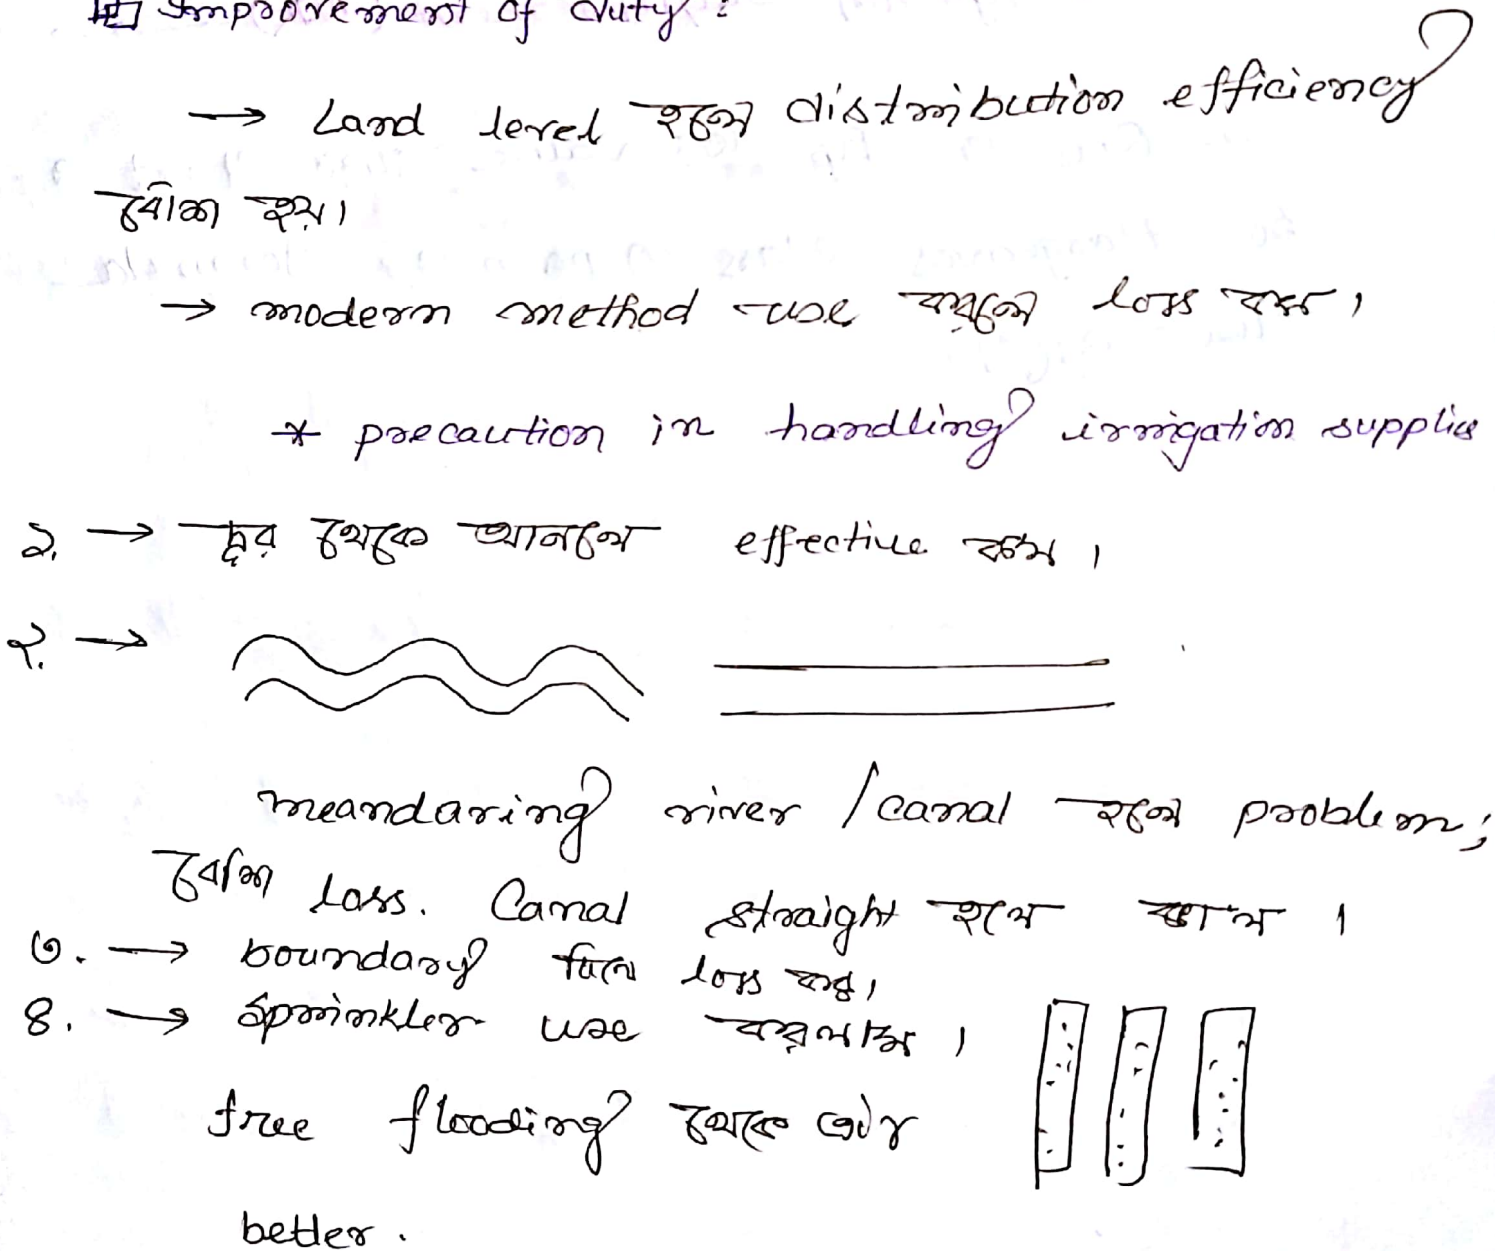 Improvement of duty :
→ Land level হলে distribution efficiency
বেশি হয়।
→ modern method use করলে loss কম।
* precaution in handling irrigation supplies
১. → দূর থেকে আনলে effective কম।
২. →
meandaring river / canal হলে problem;
বেশি loss. Canal straight হলে ভাল।
৩. → boundary দিলে loss কম।
৪. → Sprinkler use করলাম।
free flooding থেকে এটা
better.